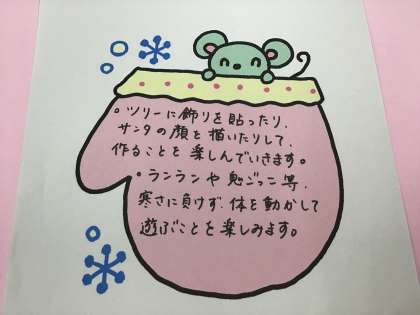 。ツリーに飾りを貼ったり、
サンタの顔を描いたりして、
作ることを楽しんでいきます。
・ランランや鬼ごっこ等、
寒さに負けず、体を動かして
遊ぶことを楽しみます。